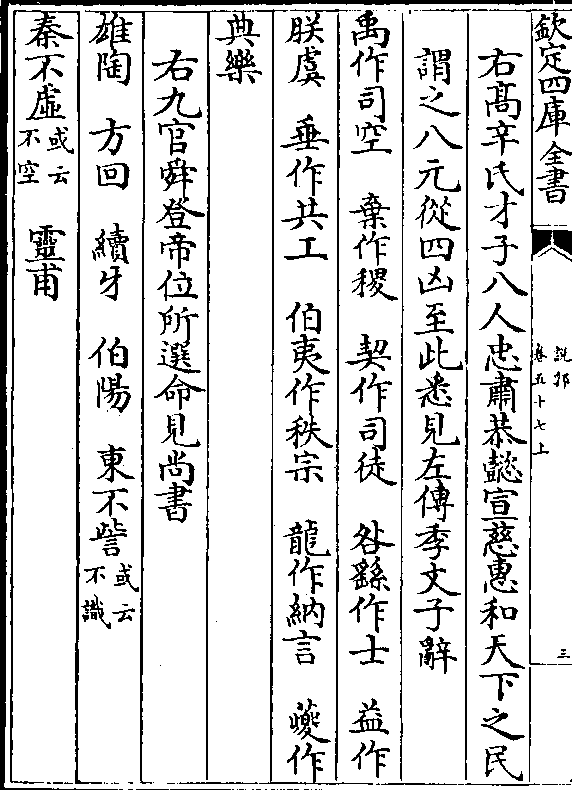 欽定四庫全書
說郛
卷五十七上
三
右髙辛氏才子八人忠肅恭懿宣慈惠和天下之民
謂之八元從四凶至此悉見左傳季文子辭
禹作司空　棄作稷　契作司徒　咎繇作士　益作
朕虞　垂作共工　伯夷作秩宗　龍作納言　夔作
典樂
右九官舜登帝位所選命見尚書
雄陶　方回　續牙　伯陽　東不訾或云不識
秦不虛或云不空　靈甫